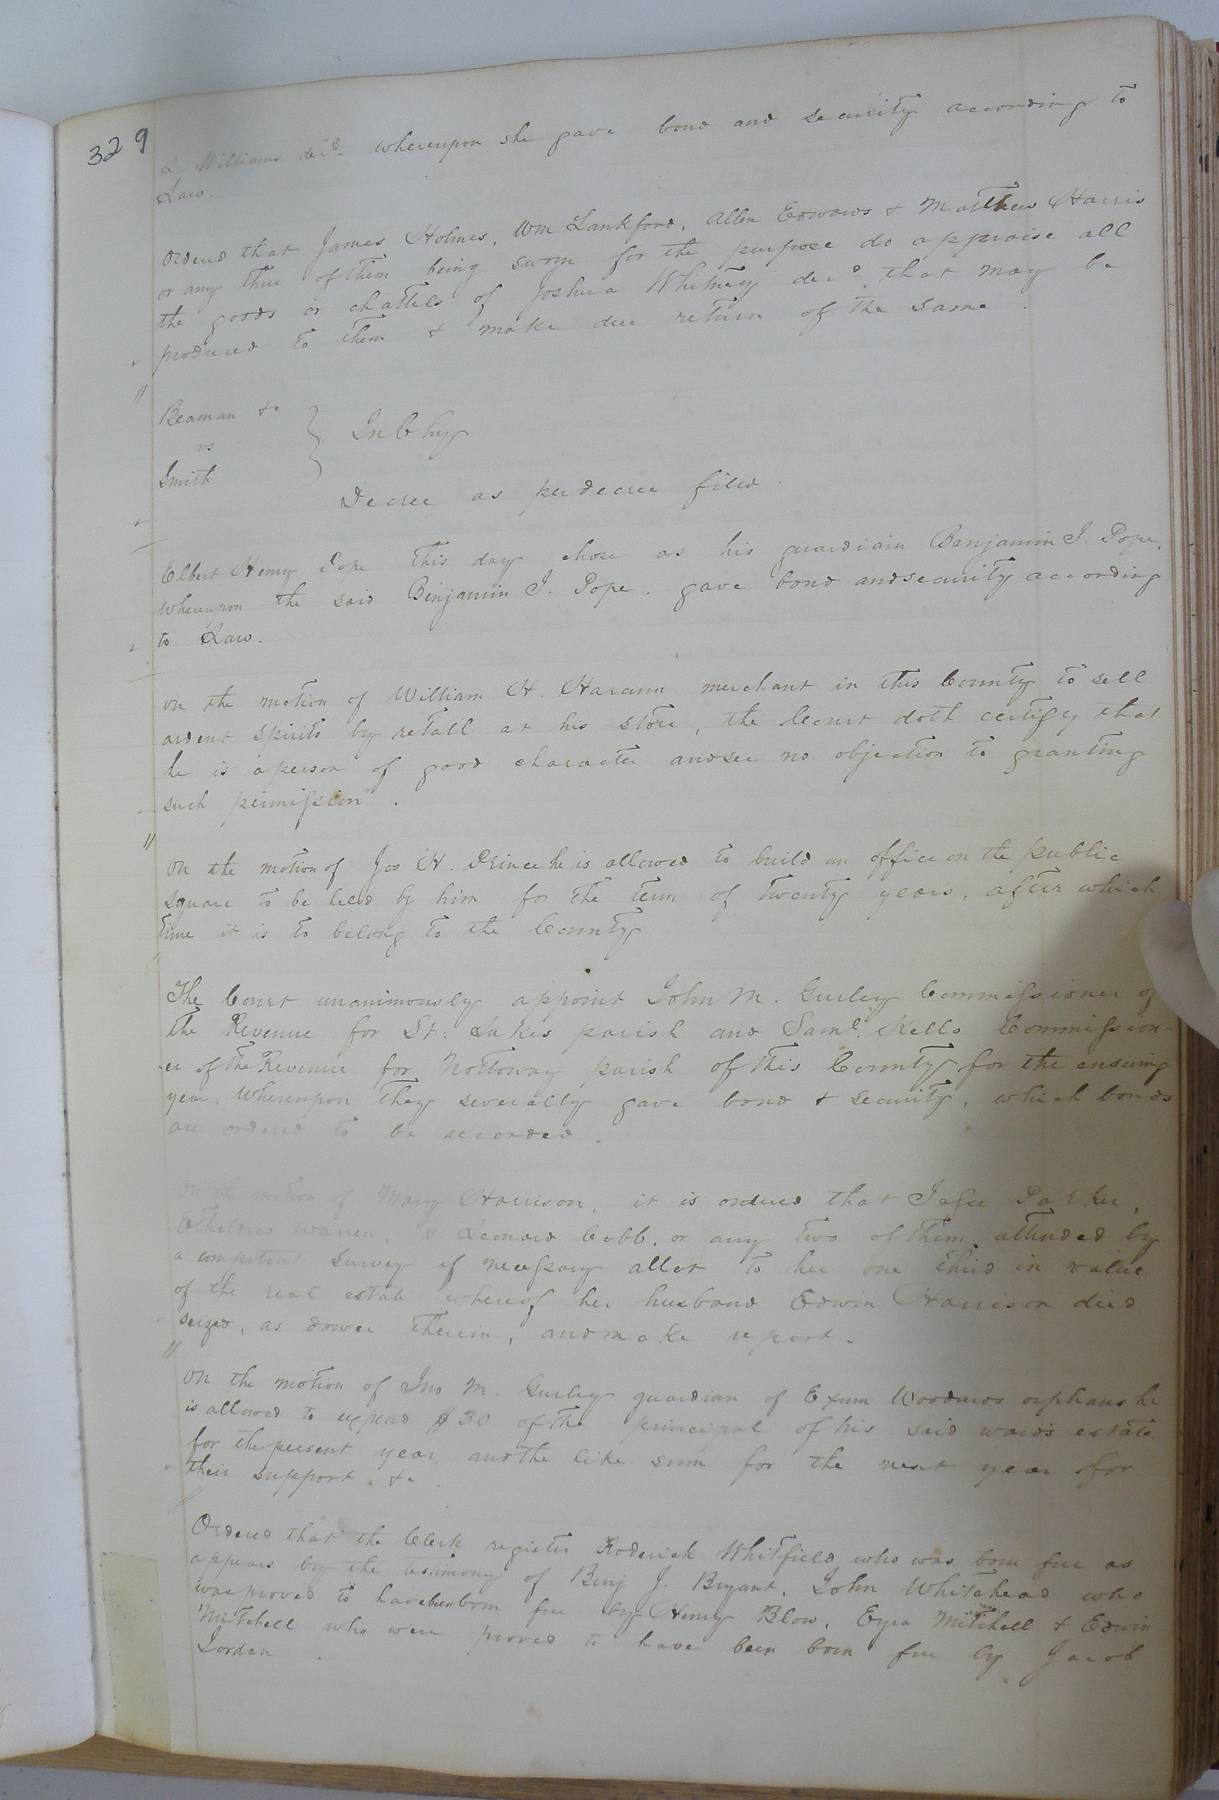 329
L. Williams decd. whereupon she gave bond and security according to
Law.
Ordered that James Holmes, Wm Lankford, Allen Edwards & Matthew Harris
or any three of them being sworn for the purpose do appraise all
the goods or chattels of Joshua Whitney decd. that may be
produced to them & make due return of the same.
Beaman &c
vs
Smith
In Chy
Decree as per decree filed.
Elbert Henry Pope this day chose as his guardian Benjamin J. Pope,
whereupon the said Benjamin J. Pope. gave bond and security according
to Law.
on the motion of William H. merchant in this County to sell
ardent spirits by retail at his store, the Court doth certify that
he is a person of good character and see no objection to granting
such permission.
on the motion of Jos H. Prince he is allowed to build an office on the public
square to be held by him for the term of twenty years, after which
time it is to belong to the County
The Court unanimously appoint John M. Gurley Commissioner of
the Revenue for St: Lukes parish and Saml. Kello Commission-
er of the Revenue for Nottoway parish of this County for the ensuing
year. Whereupon they severally gave bond & security, which bonds
are ordered to be recorded.
On the motion of Mary Harrison, it is ordered that Jesse Parker,
Etheldred Warren, & Lemond Cobb, or any two of them attended by
a competent Survey if necessary allot to her one third in value
of the real estate whereof her husband Edwin Harrison died
seized, as dower therein, and make report.
On the motion of Jno M. Gurley guardian of Exum Woodards orphans he
is allowed to expend $30 of the principal of his said wards estate
for the present year and the like sum for the next year for
their support &c.
Ordered that the Clerk register Roderick Whitfield who was born free as
appears by the testimony of Benj J. Bryant, John Whitehead who
was proved to have been born free by Henry Blow, Mitchell & Edwin
Mitchell who were proved to have been born free by Jacob
Jordan.